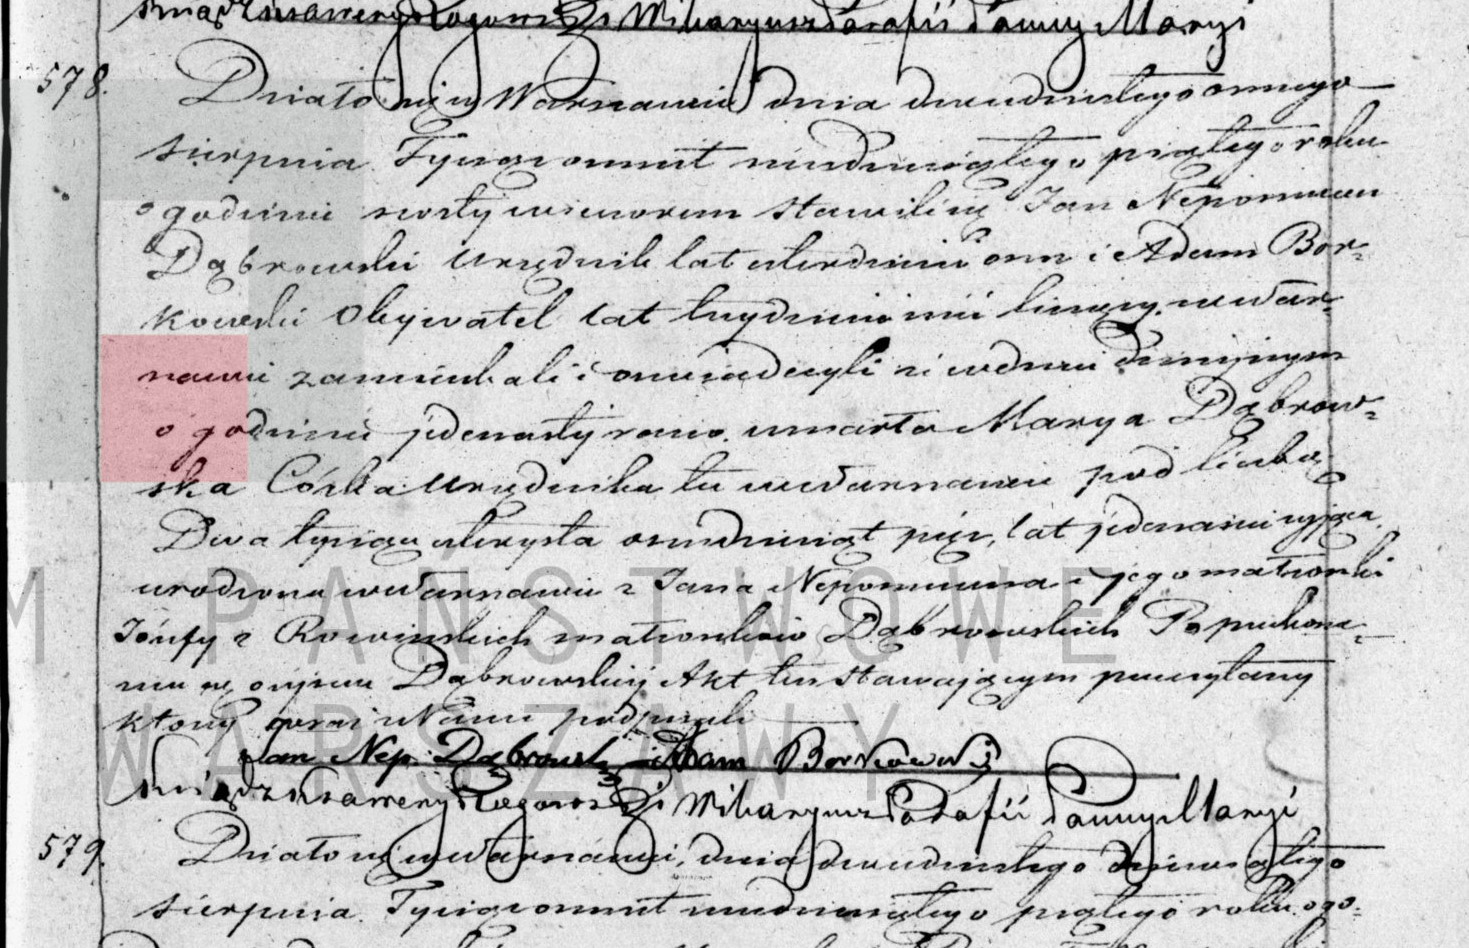 Xiądz Xsawery Rogowski Wikaryusz Parafii Panny Maryi
578. Działo się w Warszawie dnia dwudziestego osmego
Sierpnia Tysiąc osmset siedmdziesiątego piątego roku
o godzinie szosty wieczorem stawili się Jan Nepomucen
Dąbrowski Urzędnik lat czterdzieści osm i Adam Bor-
kowski Obywatel lat trzydzieści liczący, w War-
szawie zamieszkali i oswiadczyli ze w dniu dzisiejszym
o godzinie jedenasty rano umarła Marya Dąbrow-
ska Córka Urzędnika tu w Warszawie pod liczbą
Dwa tysiące czterysta osmdziesiąt pięć, lat jedenascie mająca,
urodzona w Warszawie z Jana Nepomucena i jego małżonki
Józefy z Rowinskich małżonków Dąbrowskich Po przekona-
niu się o zejsciu Dąbrowskiej Akt ten Stawającym przeczytany
który wraz z Nami podpisali
Jan Nep: Dąbrowski Adam Borkowski
Xiądz Xsawery Rogowski Wikaryusz Parafii Panny Maryi
579. Działo się w Warszawie, dnia dwudziestego dziewiątego
Sierpnia Tysiąc osmset siedmdziesiątego piątego roku o go-
M PAŃSTWOWE
WARSZAWY